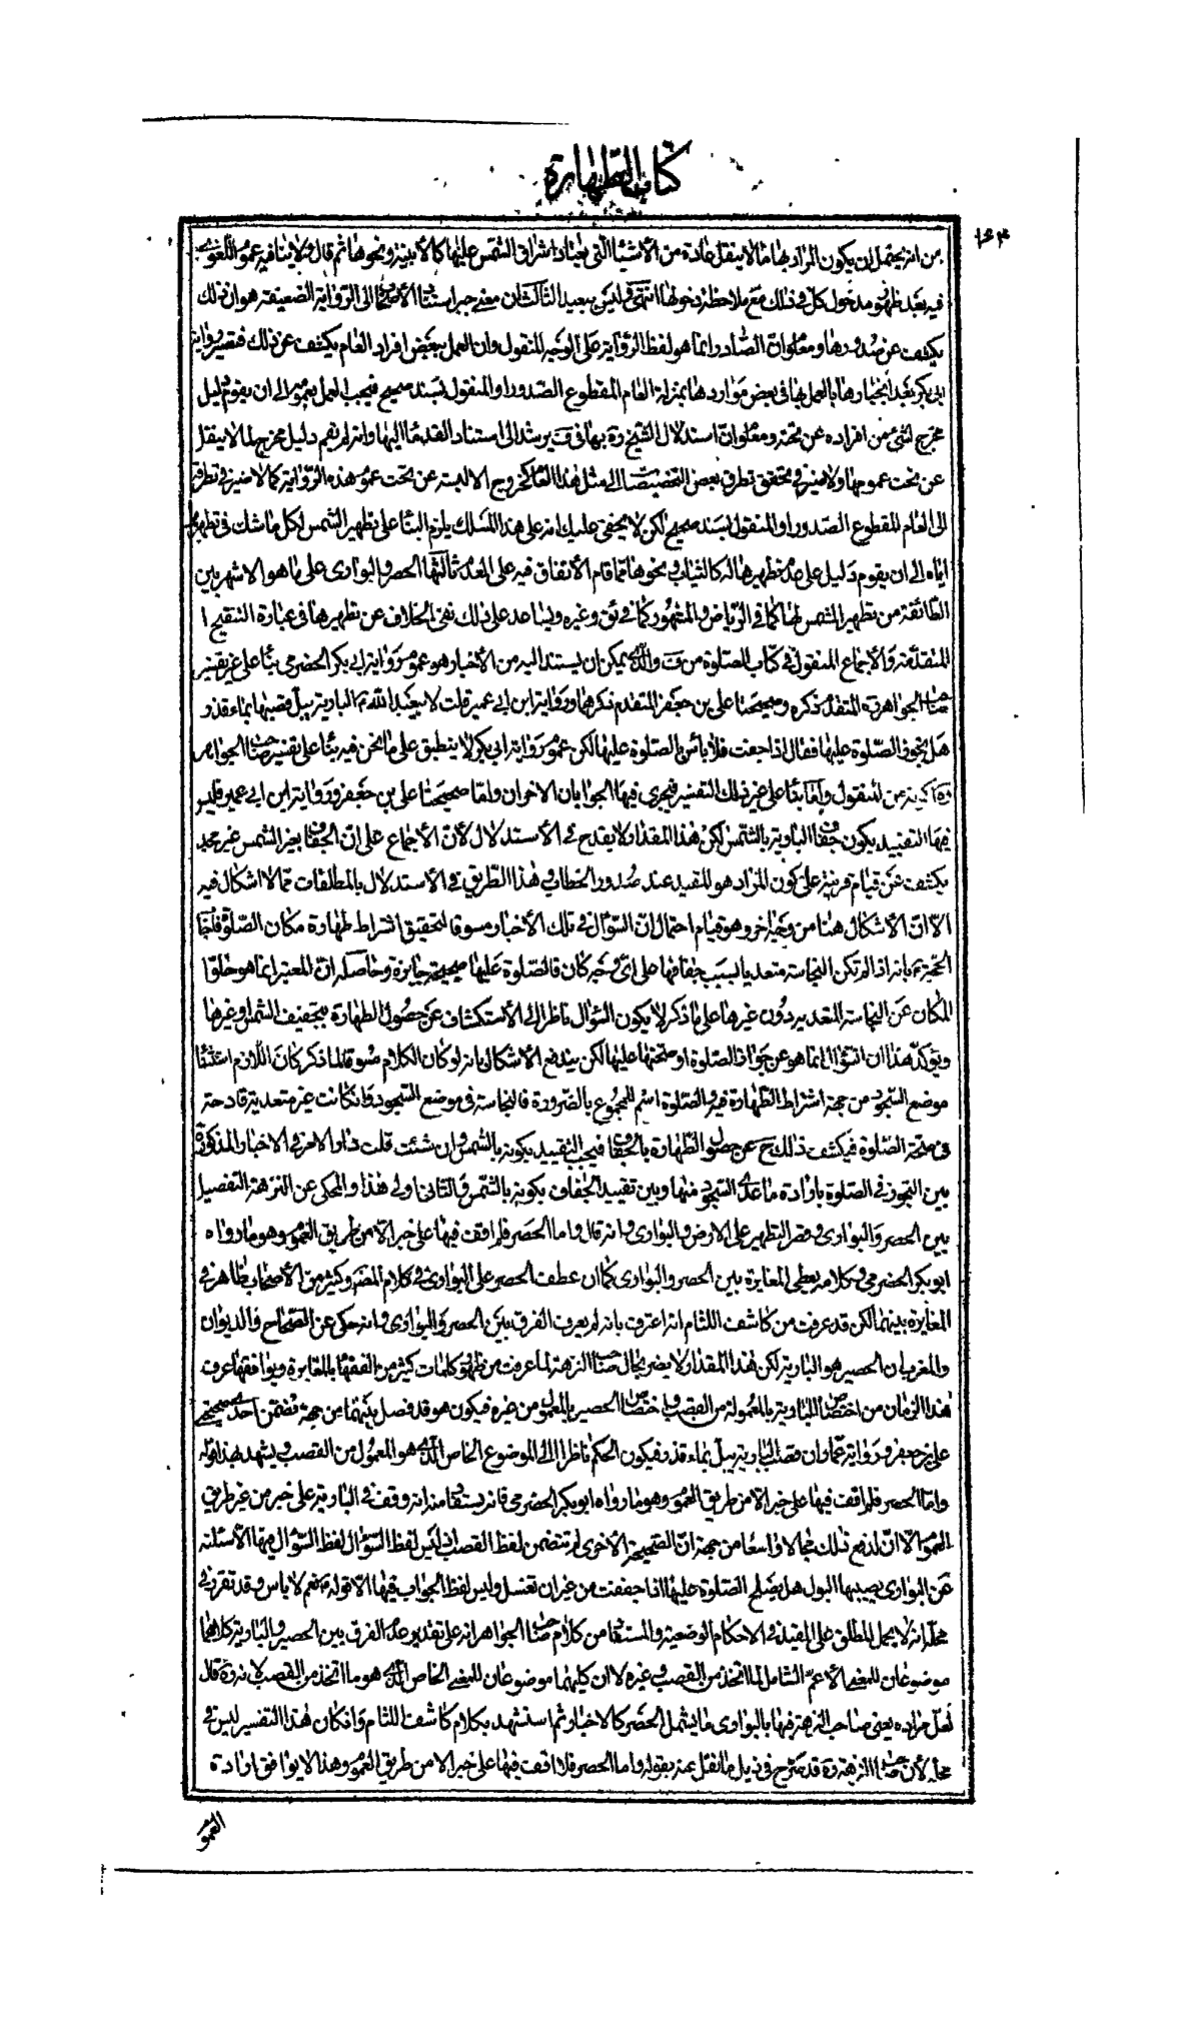 كتاب الطهارة
١٦٣
من انه يحتمل ان يكون المراد بها ما لا ينقل عادة من الأشياء التى يعتاد اشراق الشمس عليها كالأبنية ونحوها ثم قال ولا ينافيه عموم اللغوى
فيه بعد ظهور مدخول كل فى ذلك مع ملاحظة دخولها انتهى وليس ببعيد الثالث ان معنى جبر استناد الأصحاب الى الرواية الضعيفة هو ان ذلك
يكشف عن صدورها ومعلوم ان الصادر انما هو لفظ الرواية على الوجه المنقول وان العمل ببعض افراد العام يكشف عن ذلك فتصير رواية
ابى بكر بعد انجبارها بالعمل بها فى بعض مواردها بمنزلة العام المقطوع الصدور او المنقول بسند صحيح فيجب العمل بعمومه الى ان يقوم دليل
مخرج لشئ من افراده عن تحته ومعلوم ان استدلال الشيخ ره بها فى ف يرشد الى استناد القدماء اليها وانه لم يقم دليل مخرج لما لا ينقل
عن تحت عمومها ولا ضير فى تحقق تطرق بعض التخصيصات الى مثل هذا العام كخروج الالبسة عن تحت عموم هذه الرواية كما لا ضير فى تطرقه
الى العام المقطوع الصدور او المنقول بسند صحيح لكن لا يخفى عليك انه على هذا المسلك يلزم البناء على تطهير الشمس لكل ما شك فى تطهيرها
اياه الى ان يقوم دليل على عدم تطهيرها له كالثياب ونحوها مما قام الاتفاق فيه على العدم ثالثها الحصر والبوارى على ما هو الاشهر بين
الطائفة من تطهير الشمس لها كما فى الرياض والمشهور كما فى ئق وغيره ويساعد على ذلك نفى الخلاف عن تطهيرها فى عبارة التنقيح ا
المتقدمة والإجماع المنقول فى كتاب الصلوة من ف والذى يمكن ان يستند اليه من الأخبار هو عموم رواية ابى بكر الحضرمى بناء على غير تفسير
صاحب الجواهر ره المتقدم ذكره وصحيحتا على بن جعفر المتقدم ذكرهما ورواية ابن ابى عمير قلت لابيعبد الله ع البارية يبل قصبها بماء قذر
هل يجوز الصلوة عليها فقال اذا جفت فلا بأس بالصلوة عليها لكن عموم رواية ابى بكر لا ينطبق على ما نحن فيه بناء على تفسير صاحب الجواهر
من المنقول واما بناء على غير ذلك التفسير فيجرى فيها الجوابان الاخران واما صحيحتا على بن جعفر ورواية ابن ابى عمير فليس
فيها التقييد بكون جفاف البارية بالشمس لكن هذا المقدار لا يقدح فى الأستدلال لأن الأجماع على ان الجفاف بغير الشمس غير مجد
يكشف عن قيام قرينة على كون المراد هو المقيد عند صدور الخطاب وهذا الطريق فى الأستدلال بالمطلقات مما لا اشكال فيه
الا ان الأشكال هنا من وجه اخر وهو قيام احتمال ان السؤال فى تلك الأخبار مسوق لتحقيق اشتراط طهارة مكان الصلوة فاجاب
الحجة ع بانه اذا لم تكن النجاسة متعدية بسبب جفافها على اى وجه كان فالصلوة عليها صحيحة جايزة وحاصله ان المعتبر انما هو خلو
المكان عن النجاسة المتعدية دون غيرها على ما ذكر لا يكون السؤال ناظرا الى الأستكشاف عن حصول الطهارة بتجفيف الشمس او غيرها
ويؤكد هذا ان السؤال انما هو عن جواز الصلوة او صحتها عليها لكن يندفع الأشكال بانه لو كان الكلام مسوقا لما ذكر كان اللازم استثناء
موضع السجود من جهة اشتراط الطهارة فيه والصلوة اسم للمجموع بالضرورة فالنجاسة فى موضع السجود وان كانت غير متعدية قادحة
فى صحة الصلوة فيكشف ذلك ح عن حصول الطهارة بالجفاف فيجب التقييد بكونه بالشمس وان شئت قلت دار الامر فى الاخبار المذكورة
بين التجوز فى الصلوة بارادة ما عدا السجود منها وبين تقييد الجفاف بكونه بالشمس والثانى اولى هذا والمحكى عن النزهة التفصيل
بين الحصر والبوارى وقصر التطهير على الارض والبوارى وانه قال واما الحصر فلم اقف فيها على خبر الا من طريق العموم وهو ما رواه
ابو بكر الحضرمى وكلامه يعطى المغايرة بين الحصر والبوارى كما ان عطف الحصر على البوارى فى كلام المصنف وكثير من الأصحاب ظاهر فى
المغايرة بينهما لكن قد عرفت من كاشف اللثام انه اعترف بانه لم يعرف الفرق بين الحصر والبوارى وانه حكى عن الصحاح والديوان
والمغرب ان الحصير هو البارية لكن هذا المقدار لا يضر بحال صاحب النزهة لما عرفت من ظهور كلمات كثير من الفقهاء بالمغايرة ويوافقها عرف
هذا الزمان من اختصاص البارية بالمعمولة من القصب واختصاص الحصير بالمعمول من غيره فيكون هو قد فصل بينهما من جهة تضمن احدى صحيحتى
على بن جعفر ورواية عمار ان قصب البارية يبل بماء قذر فيكون الحكم ناظرا الى الموضوع الخاص الذى هو المعمول من القصب ويشهد بهذا قوله
واما الحصر فلم اقف فيها على خبر الا من طريق العموم وهو ما رواه ابو بكر الحضرمى فانه يستفاد منه انه وقف فى البارية على خبر من غير طريق
العموم الا ان لدفع ذلك مجالا واسعا من جهة ان الصحيحة الأخرى لم تتضمن لفظ القصب اذ ليس لفظ السؤال فيها الا سئلته
عن البوارى يصيبها البول هل يصلح الصلوة عليها اذا جففت من غير ان تغسل وليس لفظ الجواب فيها الا قوله ع نعم لا باس وقد تقرر فى
محله انه لا يحمل المطلق على المقيد فى الاحكام الوضعية والمستفاد من كلام صاحب الجواهر انه على تقدير عدم الفرق بين الحصير والبارية كلاهما
موضوعان للمعنى الأعم الشامل لما اتخذ من القصب وغيره لا ان كليهما موضوعان للمعنى الخاص الذى هو ما اتخذ من القصب لانه ره قال
لعل مراده يعنى صاحب النزهة فيها بالبوارى ما يشمل الحصر كالاخبار ثم استشهد بكلام كاشف اللثام وان كان هذا التفسير ليس فى
محله لأن صاحب النزهة ره قد صرح فى ذيل ما نقل عنه بقوله واما الحصر فلا اقف فيها على خبر الا من طريق العموم وهذا لا يوافق ارادة
العموم